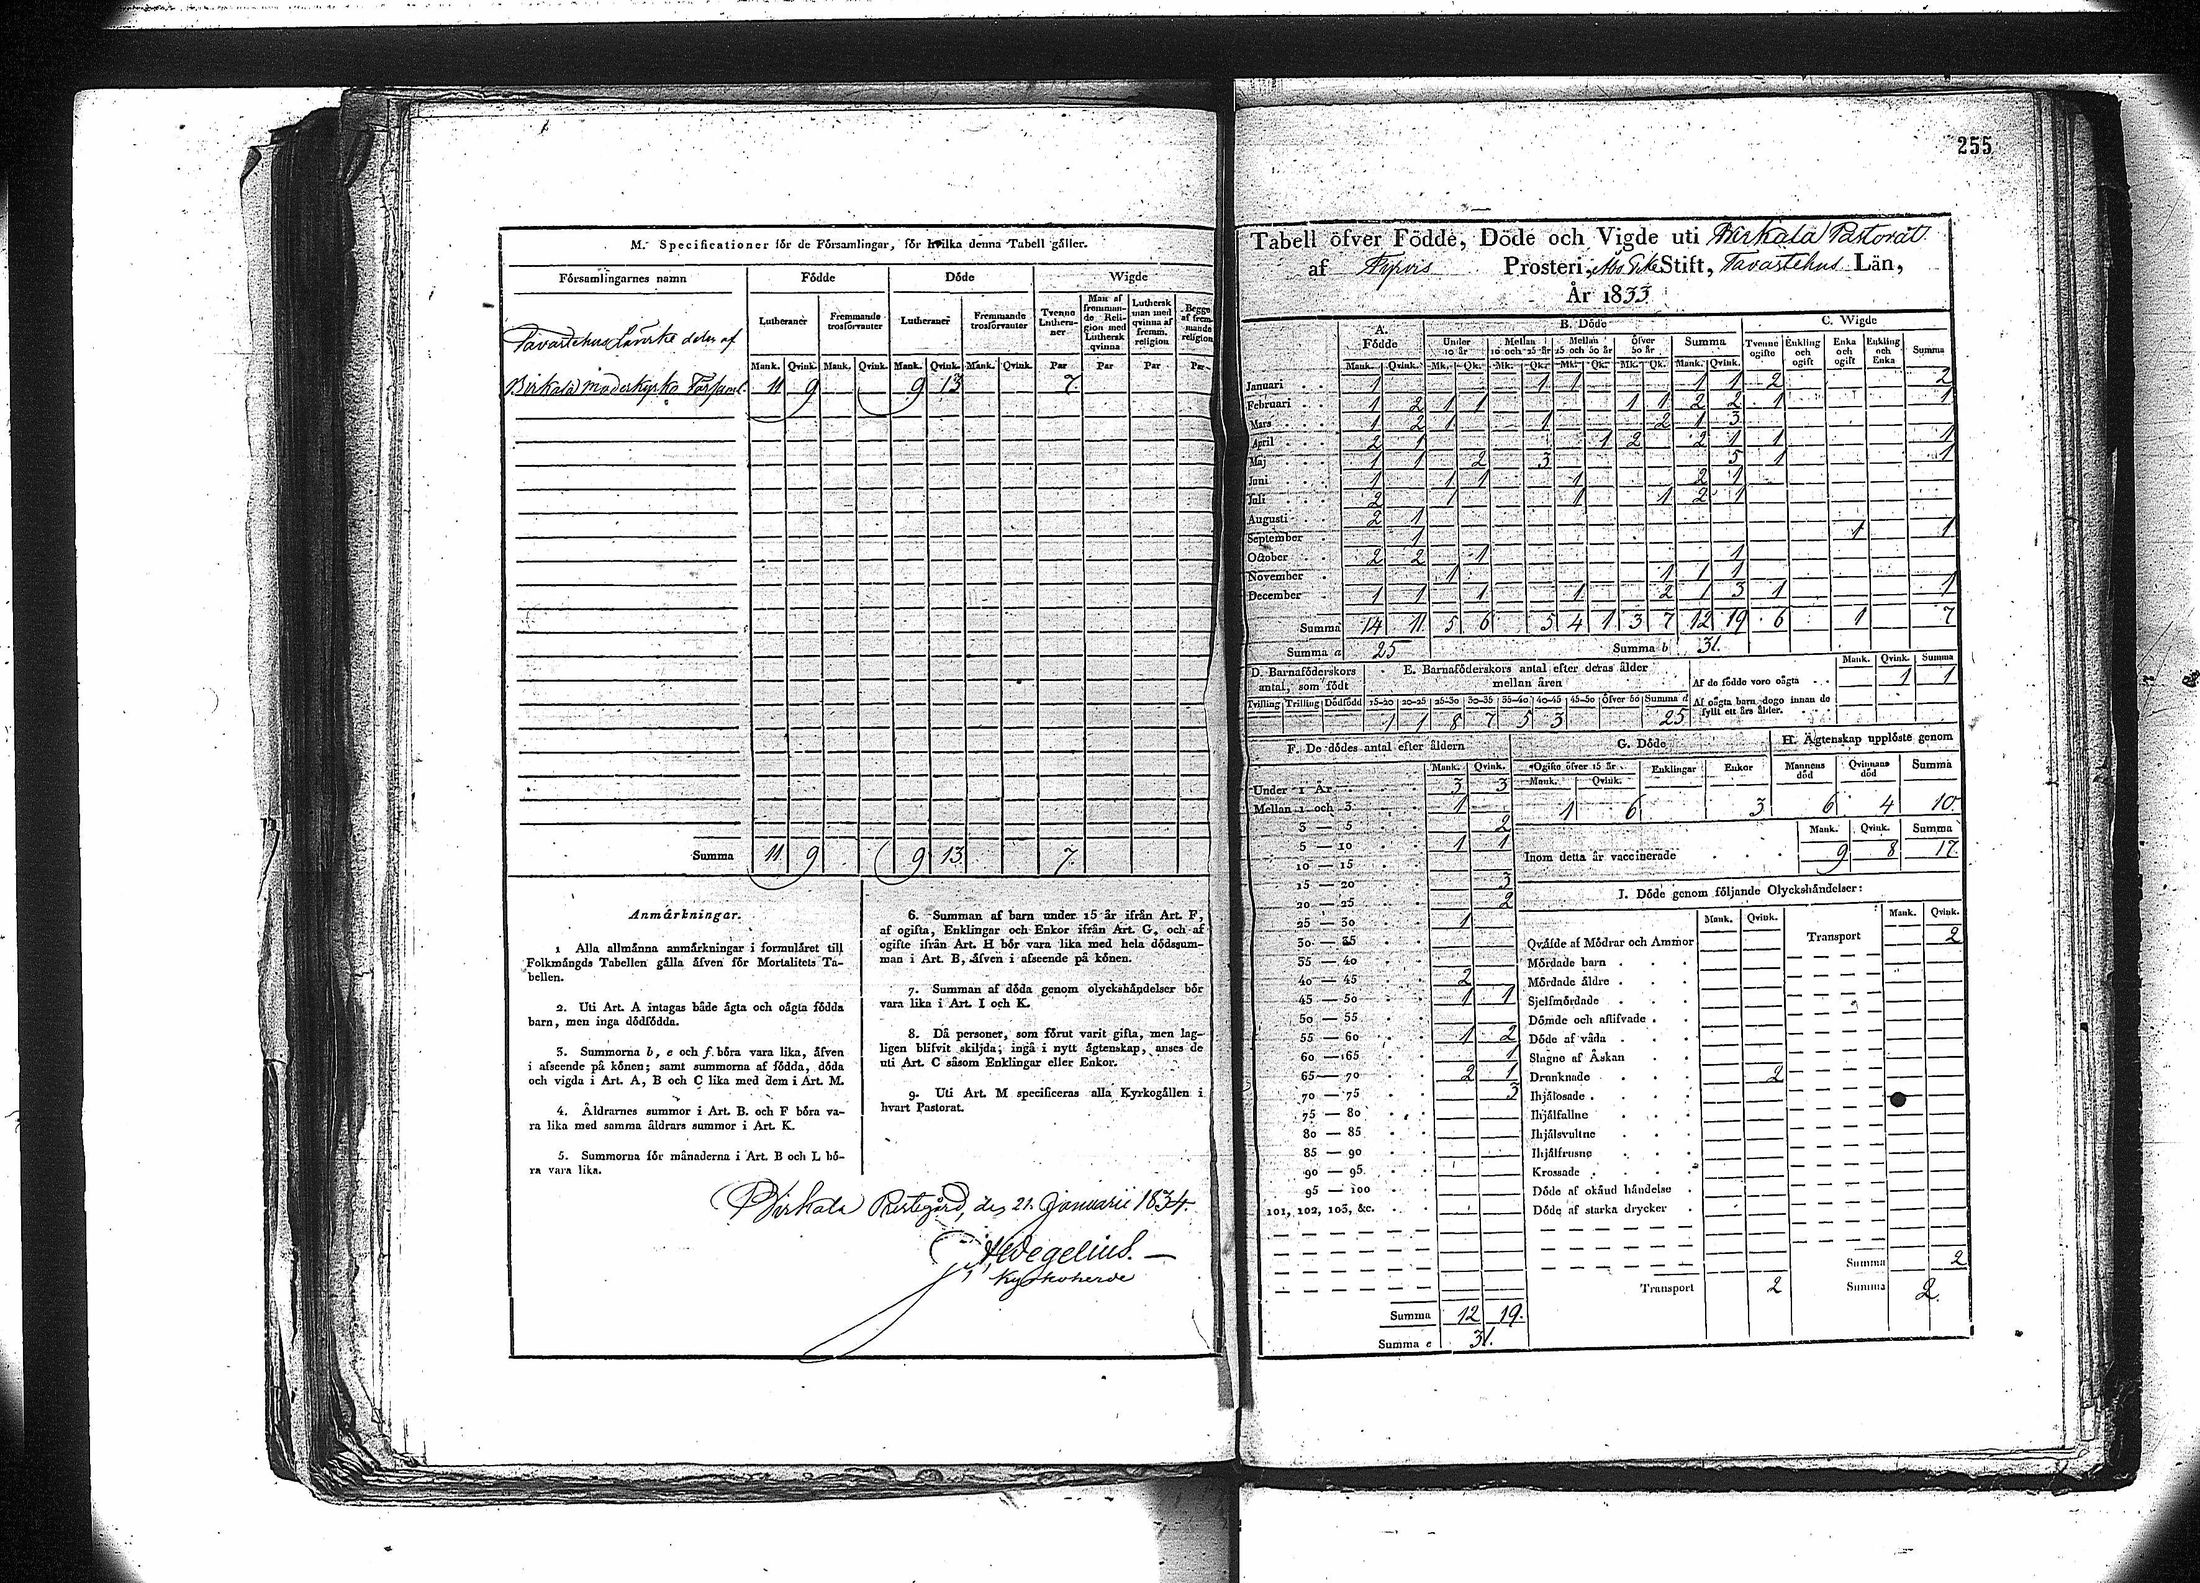 M. Specificationer för de Församlingar, för hvilka denna Tabell gäller.
Församlingarnes namn Födde Döde Wigde
Lutheraner Fremmande trosförvanter Lutheraner Fremmande trosförvanter Tvenne Lutheraner Man af fremmande Religion med Luthersk qvinna Luthersk man med qvinna af fremm. religion Begge af fremmande religion
Tavastehus Länske delen af
Mank. Qvink. Mank. Qvink. Mank. Qvink. Mank. Qvink. Par Par Par Par
Birkala moderkyrko Församl. 11 9 9 13 7
Summa 11 9 9 13 7
Anmärkningar.
1 Alla allmänna anmärkningar i formuläret till
Folkmängds Tabellen gälla äfven för Mortalitets Ta-
bellen.
2. Uti Art. A intagas både ägta och oägta födda
barn, men inga dödfödda.
3. Summorna b, e och f böra vara lika, äfven
i afseende på könen; samt summorna af födda, döda
och vigda i Art. A, B och C lika med dem i Art. M.
4. Åldrarnes summor i Art. B. och F böra va-
ra lika med samma åldrars summor i Art. K.
5. Summorna för månaderna i Art. B och L bö-
ra vara lika.
6. Summan af barn under 15 år ifrån Art. F,
af ogifta, Enklingar och Enkor ifrån Art. G, och af
ogifte ifrån Art. H bör vara lika med hela dödssum-
man i Art. B, äfven i afseende på könen.
7. Summan af döda genom olyckshändelser bör
vara lika i Art. I och K.
8. Då personer, som förut varit gifta, men lag-
ligen blifvit skiljda; ingå i nytt ägtenskap, anses de
uti Art. C såsom Enklingar eller Enkor.
9. Uti Art. M specificeras alla Kyrkogällen i
hvart Pastorat.
Birkala Prestegård, den 21. Januarii 1834.
Wegelius.
Kyrkoherde
255
Tabell öfver Födde, Döde och Vigde uti Birkala Pastorat
af Tyrvis Prosteri, Åbo Erke Stift, Tavastehus Län,
År 1833
A. Födde B. Döde C. Wigde
Under 10 år Mellan 10 och 25 år Mellan 25 och 50 år Öfver 50 år Summa Tvenne ogifte Enkling och ogift Enka och ogift Enkling och Enka Summa
Mank. Qvink. Mk. Qk. Mk. Qk. Mk. Qk. Mk. Qk. Mank. Qvink.
Januari 1 1 1 1 1 2 2
Februari 1 2 1 1 1 1 2 2 1 1
Mars 1 2 1 1 2 1 3
April 2 1 1 2 2 1 1 1
Maj 1 1 2 3 5 1 1
Juni 1 1 1 1 2 1
Juli 2 1 1 1 2 1
Augusti 2 1
September 1 1 1
October 2 2 1 1
November 1 1 1 1
December 1 1 1 1 2 1 3 1 1
Summa 14 11 5 6 5 4 1 3 7 12 19 6 1 7
Summa a 25 Summa b 31.
D. Barnaföderskors antal, som födt
Tvilling Trilling Dödfödd
E. Barnaföderskors antal efter deras ålder mellan åren
15-20 20-25 25-30 30-35 35-40 40-45 45-50 Öfver 50 Summa d
1 1 8 7 5 3 25
Mank. Qvink. Summa
Af de födde voro oägta 1 1
Af oägta barn dogo innan de fyllt ett års ålder.
F. De dödes antal efter åldern
Mank. Qvink.
Under 1 År 3 3
Mellan 1 och 3 1
3 — 5 2
5 — 10 1 1
10 — 15
15 — 20 3
20 — 25 2
25 — 30 1
30 — 35
35 — 40
40 — 45 2
45 — 50 1 1
50 — 55
55 — 60 1 2
60 — 65 1
65 — 70 2 1
70 — 75 3
75 — 80
80 — 85
85 — 90
90 — 95
95 — 100
101, 102, 103, &c.
Summa 12 19.
Summa e 31.
G. Döde
Ogifte öfver 15 år Enklingar Enkor
Mank. Qvink.
1 6 3
H. Ägtenskap upplöste genom
Mannens död Qvinnans död Summa
6 4 10
Mank. Qvink. Summa
Inom detta år vaccinerade 9 8 17
I. Döde genom följande Olyckshändelser:
Mank. Qvink. Mank. Qvink.
Qväfde af Mödrar och Ammor Transport 2
Mördade barn
Mördade äldre
Sjelfmördade
Dömde och aflifvade
Döde af våda
Slagne af Åskan
Drunknade 2
Ihjälosade
Ihjälfallne
Ihjälsvultne
Ihjälfrusne
Krossade
Döde af okänd händelse
Döde af starka drycker
Summa 2
Transport 2 Summa 2.